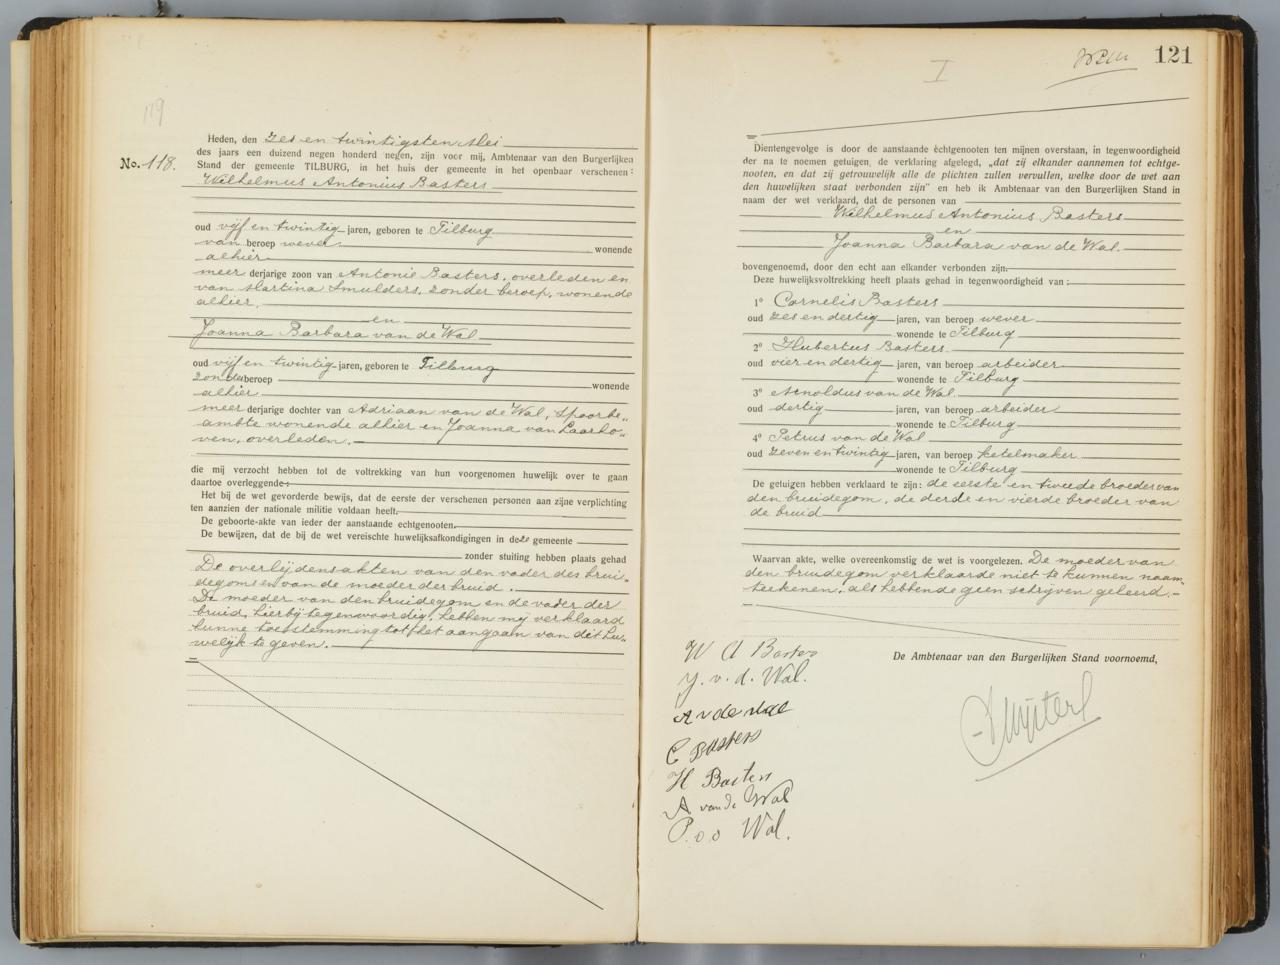 119
No. 118.
Heden, den zes en twintigsten Mei
des jaars een duizend negen honderd negen, zijn voor mij, Ambtenaar van den Burgerlijken
Stand der gemeente TILBURG, in het huis der gemeente in het openbaar verschenen:
Wilhelmus Antonius Basters
oud vijf en twintig jaren, geboren te Tilburg
van beroep wever wonende
alhier
meer derjarige zoon van Antonie Basters, overleden en
van Martina Smulders, zonder beroep, wonende
alhier.
en
Joanna Barbara van de Wal
oud vijf en twintig jaren, geboren te Tilburg
zonder beroep wonende
alhier
meer derjarige dochter van Adriaan van de Wal, spoorbe„
ambte wonende alhier en Joanna van Laarho„
ven, overleden.
die mij verzocht hebben tot de voltrekking van hun voorgenomen huwelijk over te gaan
daartoe overleggende:
Het bij de wet gevorderde bewijs, dat de eerste der verschenen personen aan zijne verplichting
ten aanzien der nationale militie voldaan heeft.
De geboorte-akte van ieder der aanstaande echtgenooten.
De bewijzen, dat de bij de wet vereischte huwelijksafkondigingen in deze gemeente
zonder stuiting hebben plaats gehad
De overlijdensakten van den vader des brui„
degoms en van de moeder der bruid.
De moeder van den bruidegom en de vader der
bruid, hierbij tegenwoordig, hebben mij verklaard
hunne toestemming tot het aangaan van dit hu„
welijk te geven.
I
121
Dientengevolge is door de aanstaande èchtgenooten ten mijnen overstaan, in tegenwoordigheid
der na te noemen getuigen, de verklaring afgelegd, „dat zij elkander aannemen tot echtge-
nooten, en dat zij getrouwelijk alle de plichten zullen vervullen, welke door de wet aan
den huwelijken staat verbonden zijn" en heb ik Ambtenaar van den Burgerlijken Stand in
naam der wet verklaard, dat de personen van
Wilhelmus Antonius Basters
en
Joanna Barbara van de Wal.
bovengenoemd, door den echt aan elkander verbonden zijn.
Deze huwelijksvoltrekking heeft plaats gehad in tegenwoordigheid van:
1° Cornelis Basters
oud zes en dertig jaren, van beroep wever
wonende te Tilburg
2° Hubertus Basters
oud vier en dertig jaren, van beroep arbeider
wonende te Tilburg
3° Arnoldus van de Wal
oud dertig jaren, van beroep arbeider
wonende te Tilburg
4° Petrus van de Wal
oud zeven en twintig jaren, van beroep ketelmaker
wonende te Tilburg
De getuigen hebben verklaard te zijn: de eerste en tweede broeder van
den bruidegom, de derde en vierde broeder van
de bruid
Waarvan akte, welke overeenkomstig de wet is voorgelezen. De moeder van
den bruidegom verklaarde niet te kunnen naam„
teekenen, als hebbende geen schrijven geleerd.
De Ambtenaar van den Burgerlijken Stand voornoemd,
W A Basters
J. v. d. Wal.
A v de Wal
C Basters
H Basters
A van de Wal
P. Wal.